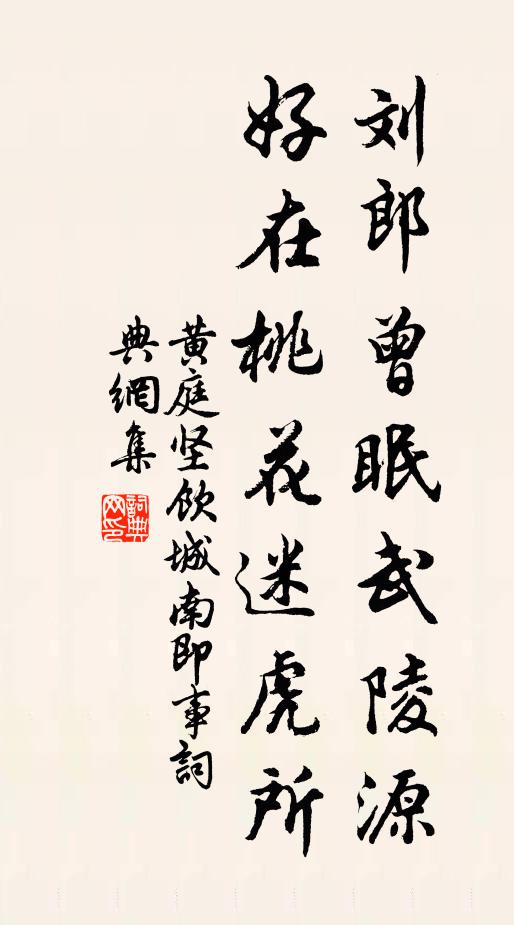 刘郎曾眠武陵源
好在桃花迷虎所
黄庭坚饮城南即事詞
典網集
詞典网印